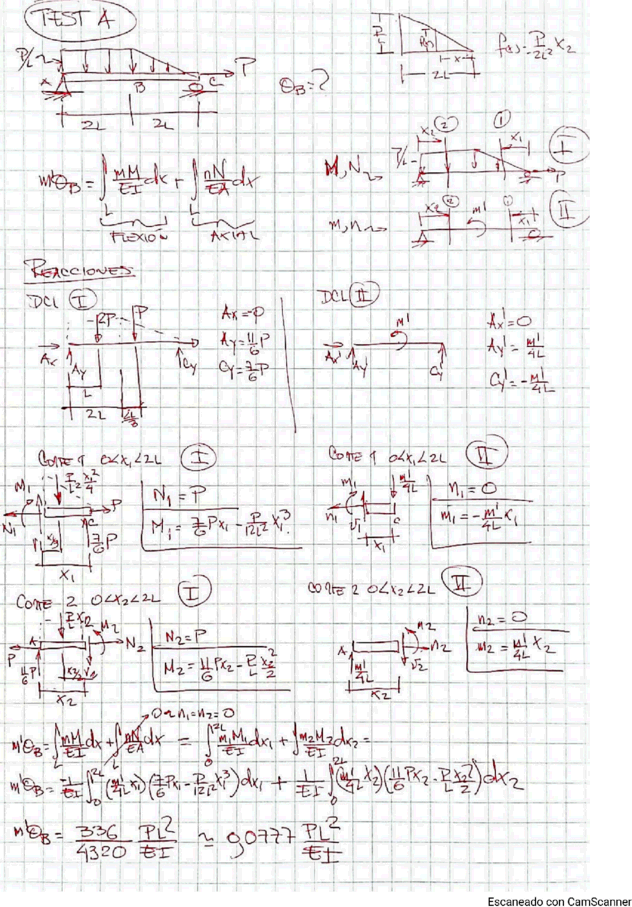 TEST A
P/L
P
A
B
C
2L
2L
θB=?
P
L
2L
f(x)=P/2L² X2
m'θB = ∫L mM/EI dx + ∫L nN/EA dx
FLEXIÓN
AXIAL
M,N
X2 ② ① X1 Ⅰ
P/L
P
m,n
X2 ② m' ① X1 Ⅱ
REACCIONES
DCL Ⅰ
2P
P
Ax
Ay
Cy
L
2L
Ax=-P
Ay=11/6 P
Cy=7/6 P
DCL Ⅱ
m'
Ax'
Ay'
Cy'
Ax'=0
Ay'=m'/4L
Cy'=-m'/4L
CORTE 1 0<X1<2L Ⅰ
M1
N1
P
C
7/6 P
X1
N1=P
M1=7/6 PX1-P/12L² X1³
CORTE 1 0<X1<2L Ⅱ
m1
n1
v1
m'/4L
C
X1
n1=0
m1=-m'/4L X1
CORTE 2 0<X2<2L Ⅰ
M2
N2
P
A
11/6 P
X2/2
V2
X2
N2=P
M2=11/6 PX2-P/L X2²/2
CORTE 2 0<X2<2L Ⅱ
m2
n2
v2
A
m'/4L
X2
n2=0
m2=m'/4L X2
m'θB=∫L mM/EI dx+∫L nN/EA dx = ∫0 2L m1M1/EI dx1+∫ m2M2/EI dx2=
n1=n2=0
m'θB=-1/EI ∫0 2L (m'/4L X1)(7/6 PX1-P/12L² X1³)dx1 + 1/EI ∫0 2L (m'/4L X2)(11/6 PX2-P/L X2²/2)dx2
m'θB= 336/4320 PL²/EI ≃ 0,0777 PL²/EI
Escaneado con CamScanner